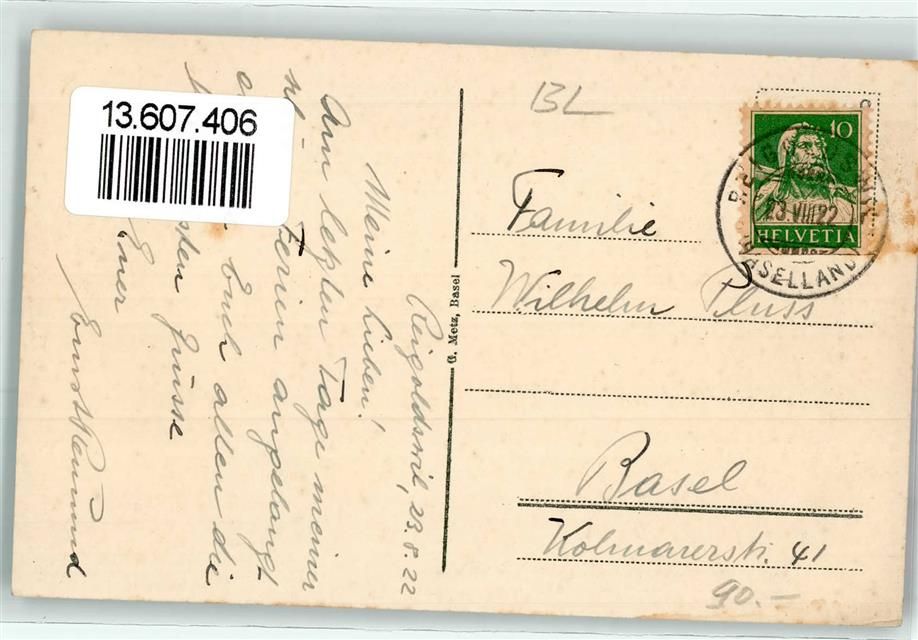 13.607.406
Reigoldswil, 23.8.22
Meine Lieben!
Am letzten Tage meiner
Ferien angelangt
Euch allen die
Grüsse
Euer
Ernst
G. Metz, Basel
BL
10
HELVETIA
23.VIII.22
BASELLAND
Familie
Wilhelm Pluss
Basel
Kolmarerstr. 41
90.-